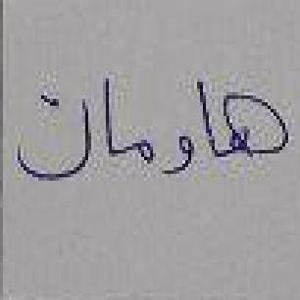 هاومان